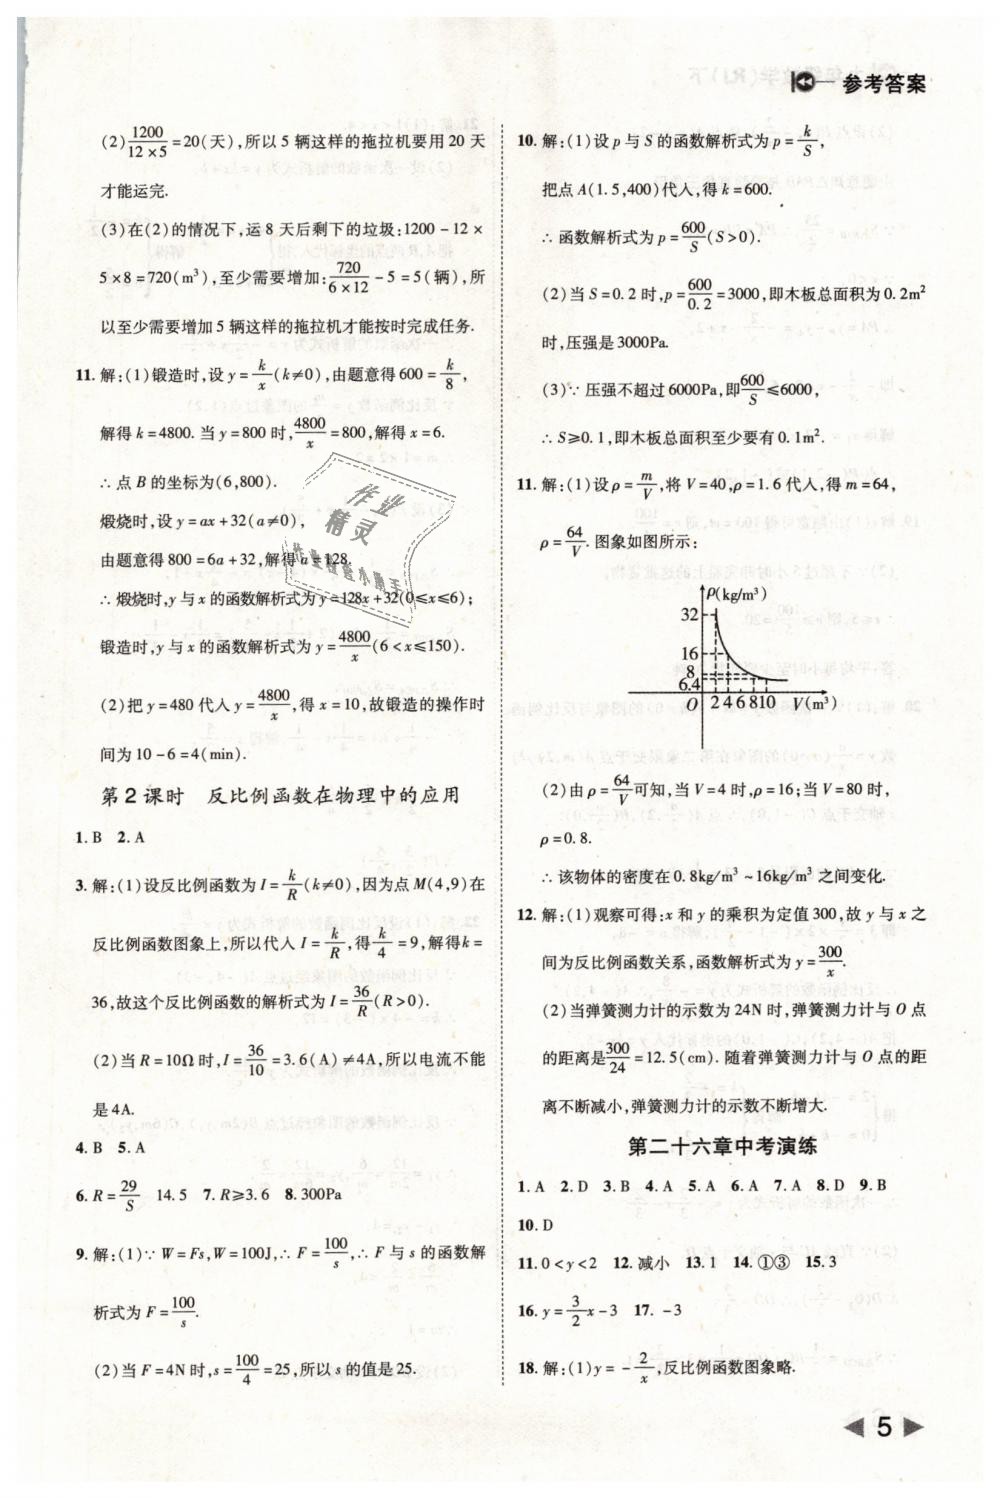 参考答案
(2)1200/(12×5)=20(天),所以5辆这样的拖拉机要用20天
才能运完.
(3)在(2)的情况下,运8天后剩下的垃圾:1200-12×
5×8=720(m³),至少需要增加:720/(6×12)-5=5(辆),所
以至少需要增加5辆这样的拖拉机才能按时完成任务.
11.解:(1)锻造时,设y=k/x(k≠0),由题意得600=k/8,
解得k=4800.当y=800时,4800/x=800,解得x=6.
∴点B的坐标为(6,800).
煅烧时,设y=ax+32(a≠0),
由题意得800=6a+32,解得a=128.
∴煅烧时,y与x的函数解析式为y=128x+32(0≤x≤6);
锻造时,y与x的函数解析式为y=4800/x(6<x≤150).
(2)把y=480代入y=4800/x,得x=10,故锻造的操作时
间为10-6=4(min).
第2课时 反比例函数在物理中的应用
1.B 2.A
3.解:(1)设反比例函数为I=k/R(k≠0),因为点M(4,9)在
反比例函数图象上,所以代入I=k/R,得k/4=9,解得k=
36,故这个反比例函数的解析式为I=36/R(R>0).
(2)当R=10Ω时,I=36/10=3.6(A)≠4A,所以电流不能
是4A.
4.B 5.A
6.R=29/S 14.5 7.R≥3.6 8.300Pa
9.解:(1)∵W=Fs,W=100J,∴F=100/s,∴F与s的函数解
析式为F=100/s.
(2)当F=4N时,s=100/4=25,所以s的值是25.
10.解:(1)设p与S的函数解析式为p=k/S,
把点A(1.5,400)代人,得k=600.
∴函数解析式为p=600/S(S>0).
(2)当S=0.2时,p=600/0.2=3000,即木板总面积为0.2m²
时,压强是3000Pa.
(3)∵压强不超过6000Pa,即600/S≤6000,
∴S≥0.1,即木板总面积至少要有0.1m².
11.解:(1)设ρ=m/V,将V=40,ρ=1.6代人,得m=64,
ρ=64/V.图象如图所示:
ρ(kg/m³)
32
16
8
6.4
O 2 4 6 8 10 V(m³)
(2)由ρ=64/V可知,当V=4时,ρ=16;当V=80时,
ρ=0.8.
∴该物体的密度在0.8kg/m³~16kg/m³之间变化.
12.解:(1)观察可得:x和y的乘积为定值300,故y与x之
间为反比例函数关系,函数解析式为y=300/x.
(2)当弹簧测力计的示数为24N时,弹簧测力计与O点
的距离是300/24=12.5(cm).随着弹簧测力计与O点的距
离不断减小,弹簧测力计的示数不断增大.
第二十六章中考演练
1.A 2.D 3.B 4.A 5.A 6.A 7.A 8.D 9.B
10.D
11.0<y<2 12.减小 13.1 14.①③ 15.3
16.y=3/2x-3 17.-3
18.解:(1)y=-2/x,反比例函数图象略.
5
作业
精灵